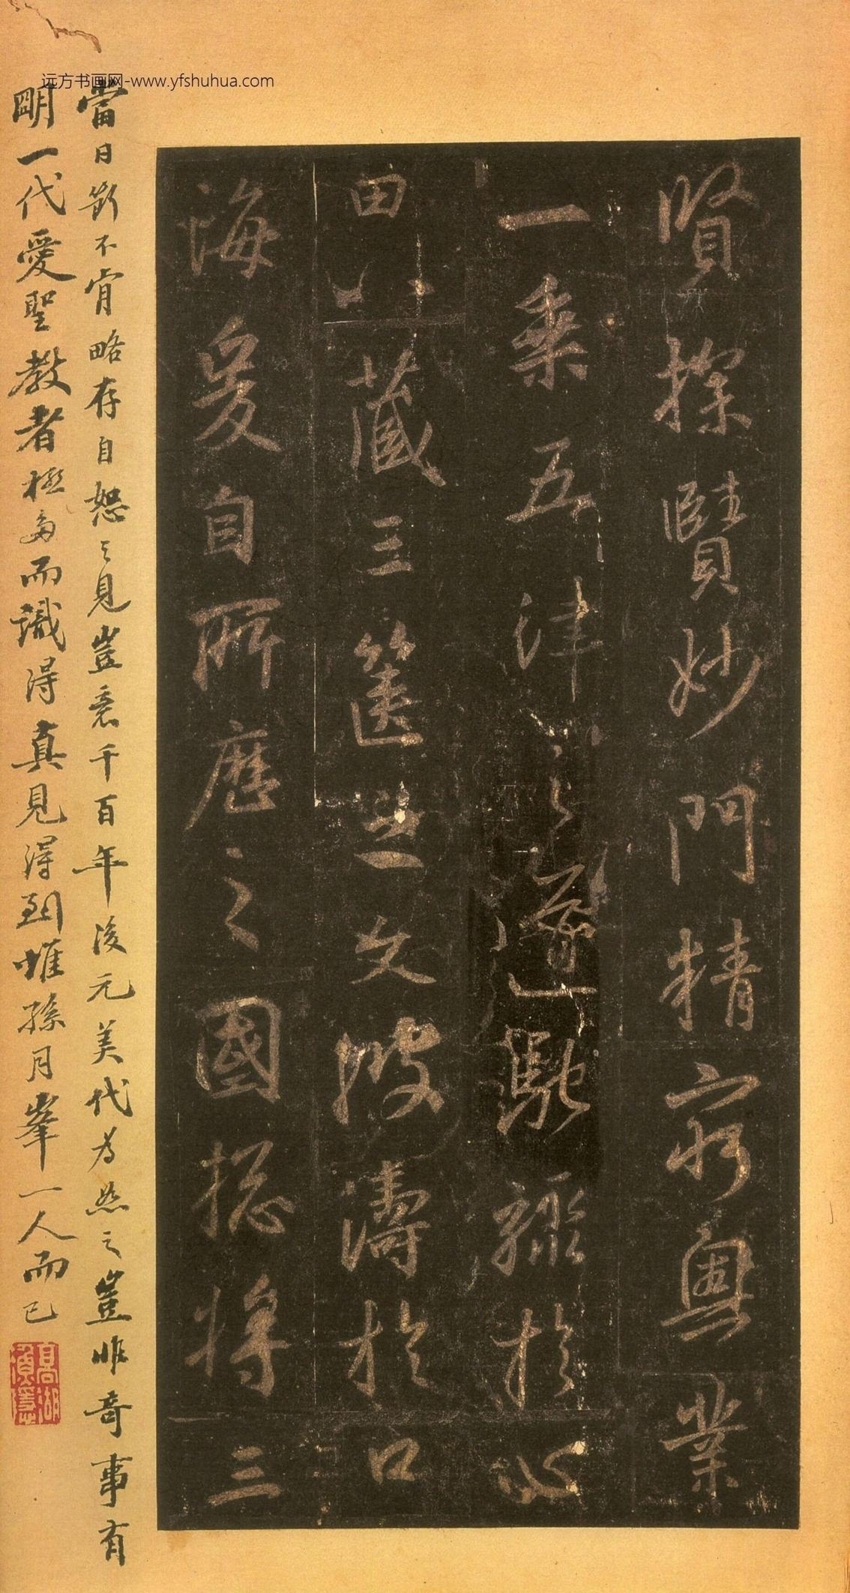 远方书画网-www.yfshuhua.com
賢探賾妙門精窮奧業
一乘五律之道馳驟於心
田八藏三篋之文波濤於口
海爰自所歷之國總將三
當日斷不肯略存自恕之見豈意千百年後元美代為恕之豈非奇事有
明一代愛聖教者極多而識得真見得到惟孫月峯一人而已